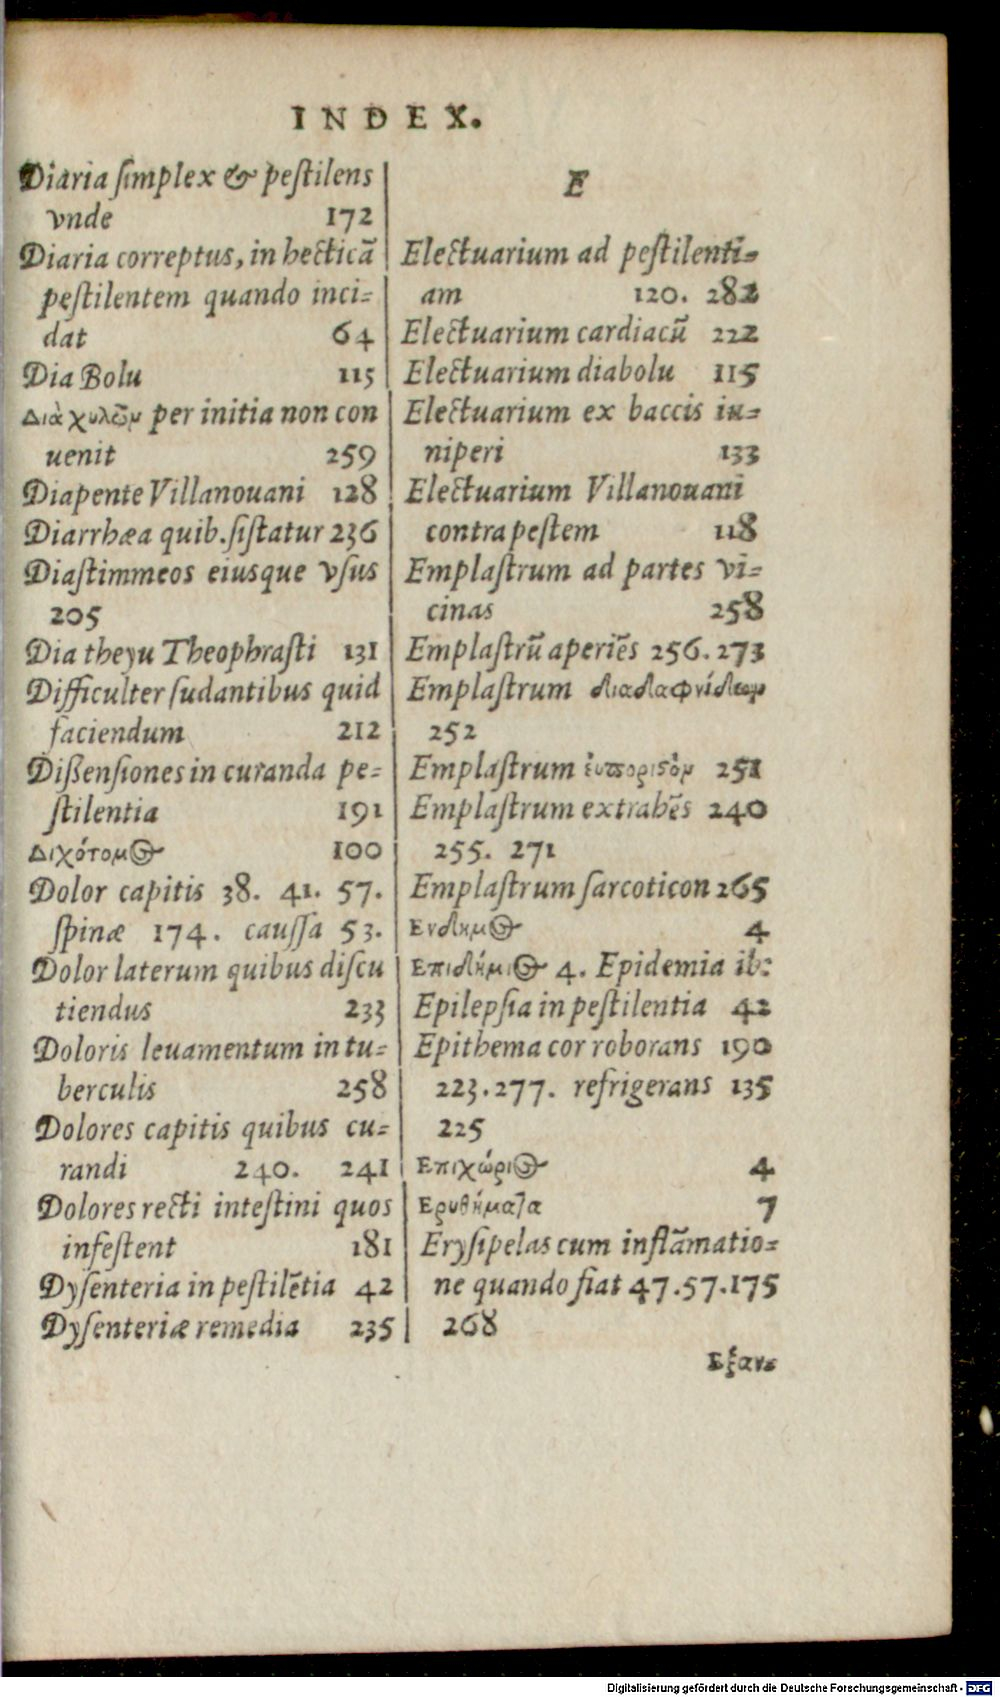 INDEX.
Diaria ſimplex & peſtilens
vnde 172
Diaria correptus, in hecticã
peſtilentem quando inci-
dat 64
Dia Bolu 115
Διὰ χυλῶμ per initia non con
uenit 259
Diapente Villanouani 128
Diarrhæa quib. ſiſtatur 236
Diaſtimmeos eiusque vſus
205
Dia theyu Theophraſti 131
Difficulter ſudantibus quid
faciendum 212
Dißenſiones in curanda pe-
ſtilentia 191
Διχότομος 100
Dolor capitis 38. 41. 57.
ſpinæ 174. cauſſa 53.
Dolor laterum quibus diſcu
tiendus 233
Doloris leuamentum in tu-
berculis 258
Dolores capitis quibus cu-
randi 240. 241
Dolores recti inteſtini quos
infeſtent 181
Dyſenteria in peſtilẽtia 42
Dyſenteriæ remedia 235
E
Electuarium ad peſtilenti-
am 120. 282
Electuarium cardiacũ 222
Electuarium diabolu 115
Electuarium ex baccis iu-
niperi 133
Electuarium Villanouani
contra peſtem 118
Emplaſtrum ad partes vi-
cinas 258
Emplaſtrũ aperiẽs 256. 273
Emplaſtrum διαδαφνίδωμ
252
Emplaſtrum ἐυποριςὸμ 251
Emplaſtrum extrahẽs 240
255. 271
Emplaſtrum ſarcoticon 265
Ενδημος 4
Επιδήμιος 4. Epidemia ib:
Epilepſia in peſtilentia 42
Epithema cor roborans 190
223. 277. refrigerans 135
225
Επιχώριος 4
Ερυθήματα 7
Eryſipelas cum inflãmatio-
ne quando fiat 47. 57. 175
268
Εξαν-
Digitalisierung gefördert durch die Deutsche Forschungsgemeinschaft - DFG